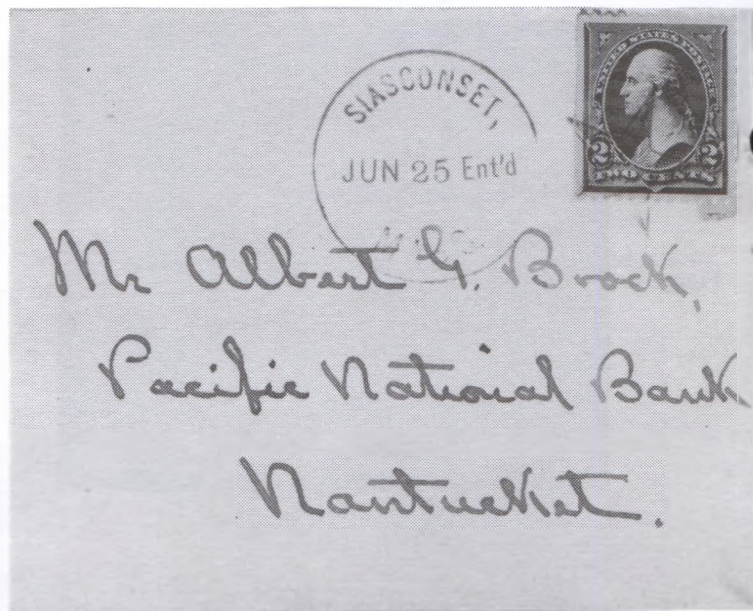 SIASCONSET,
JUN 25 Ent'd
MASS
UNITED STATES POSTAGE
2 2
TWO CENTS
Mr Albert G. Brock,
Pacific National Bank
Nantucket.